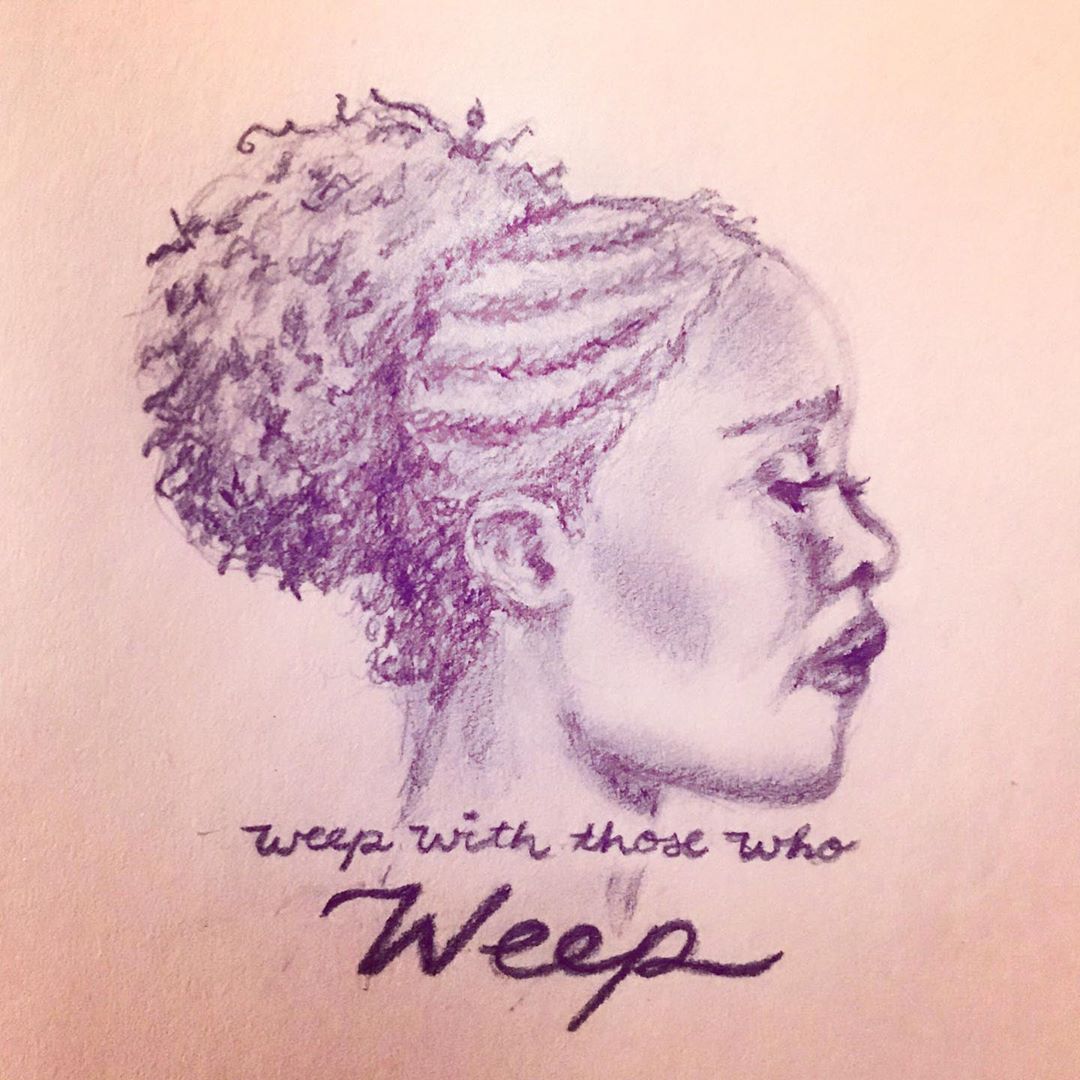 weep with those who
Weep